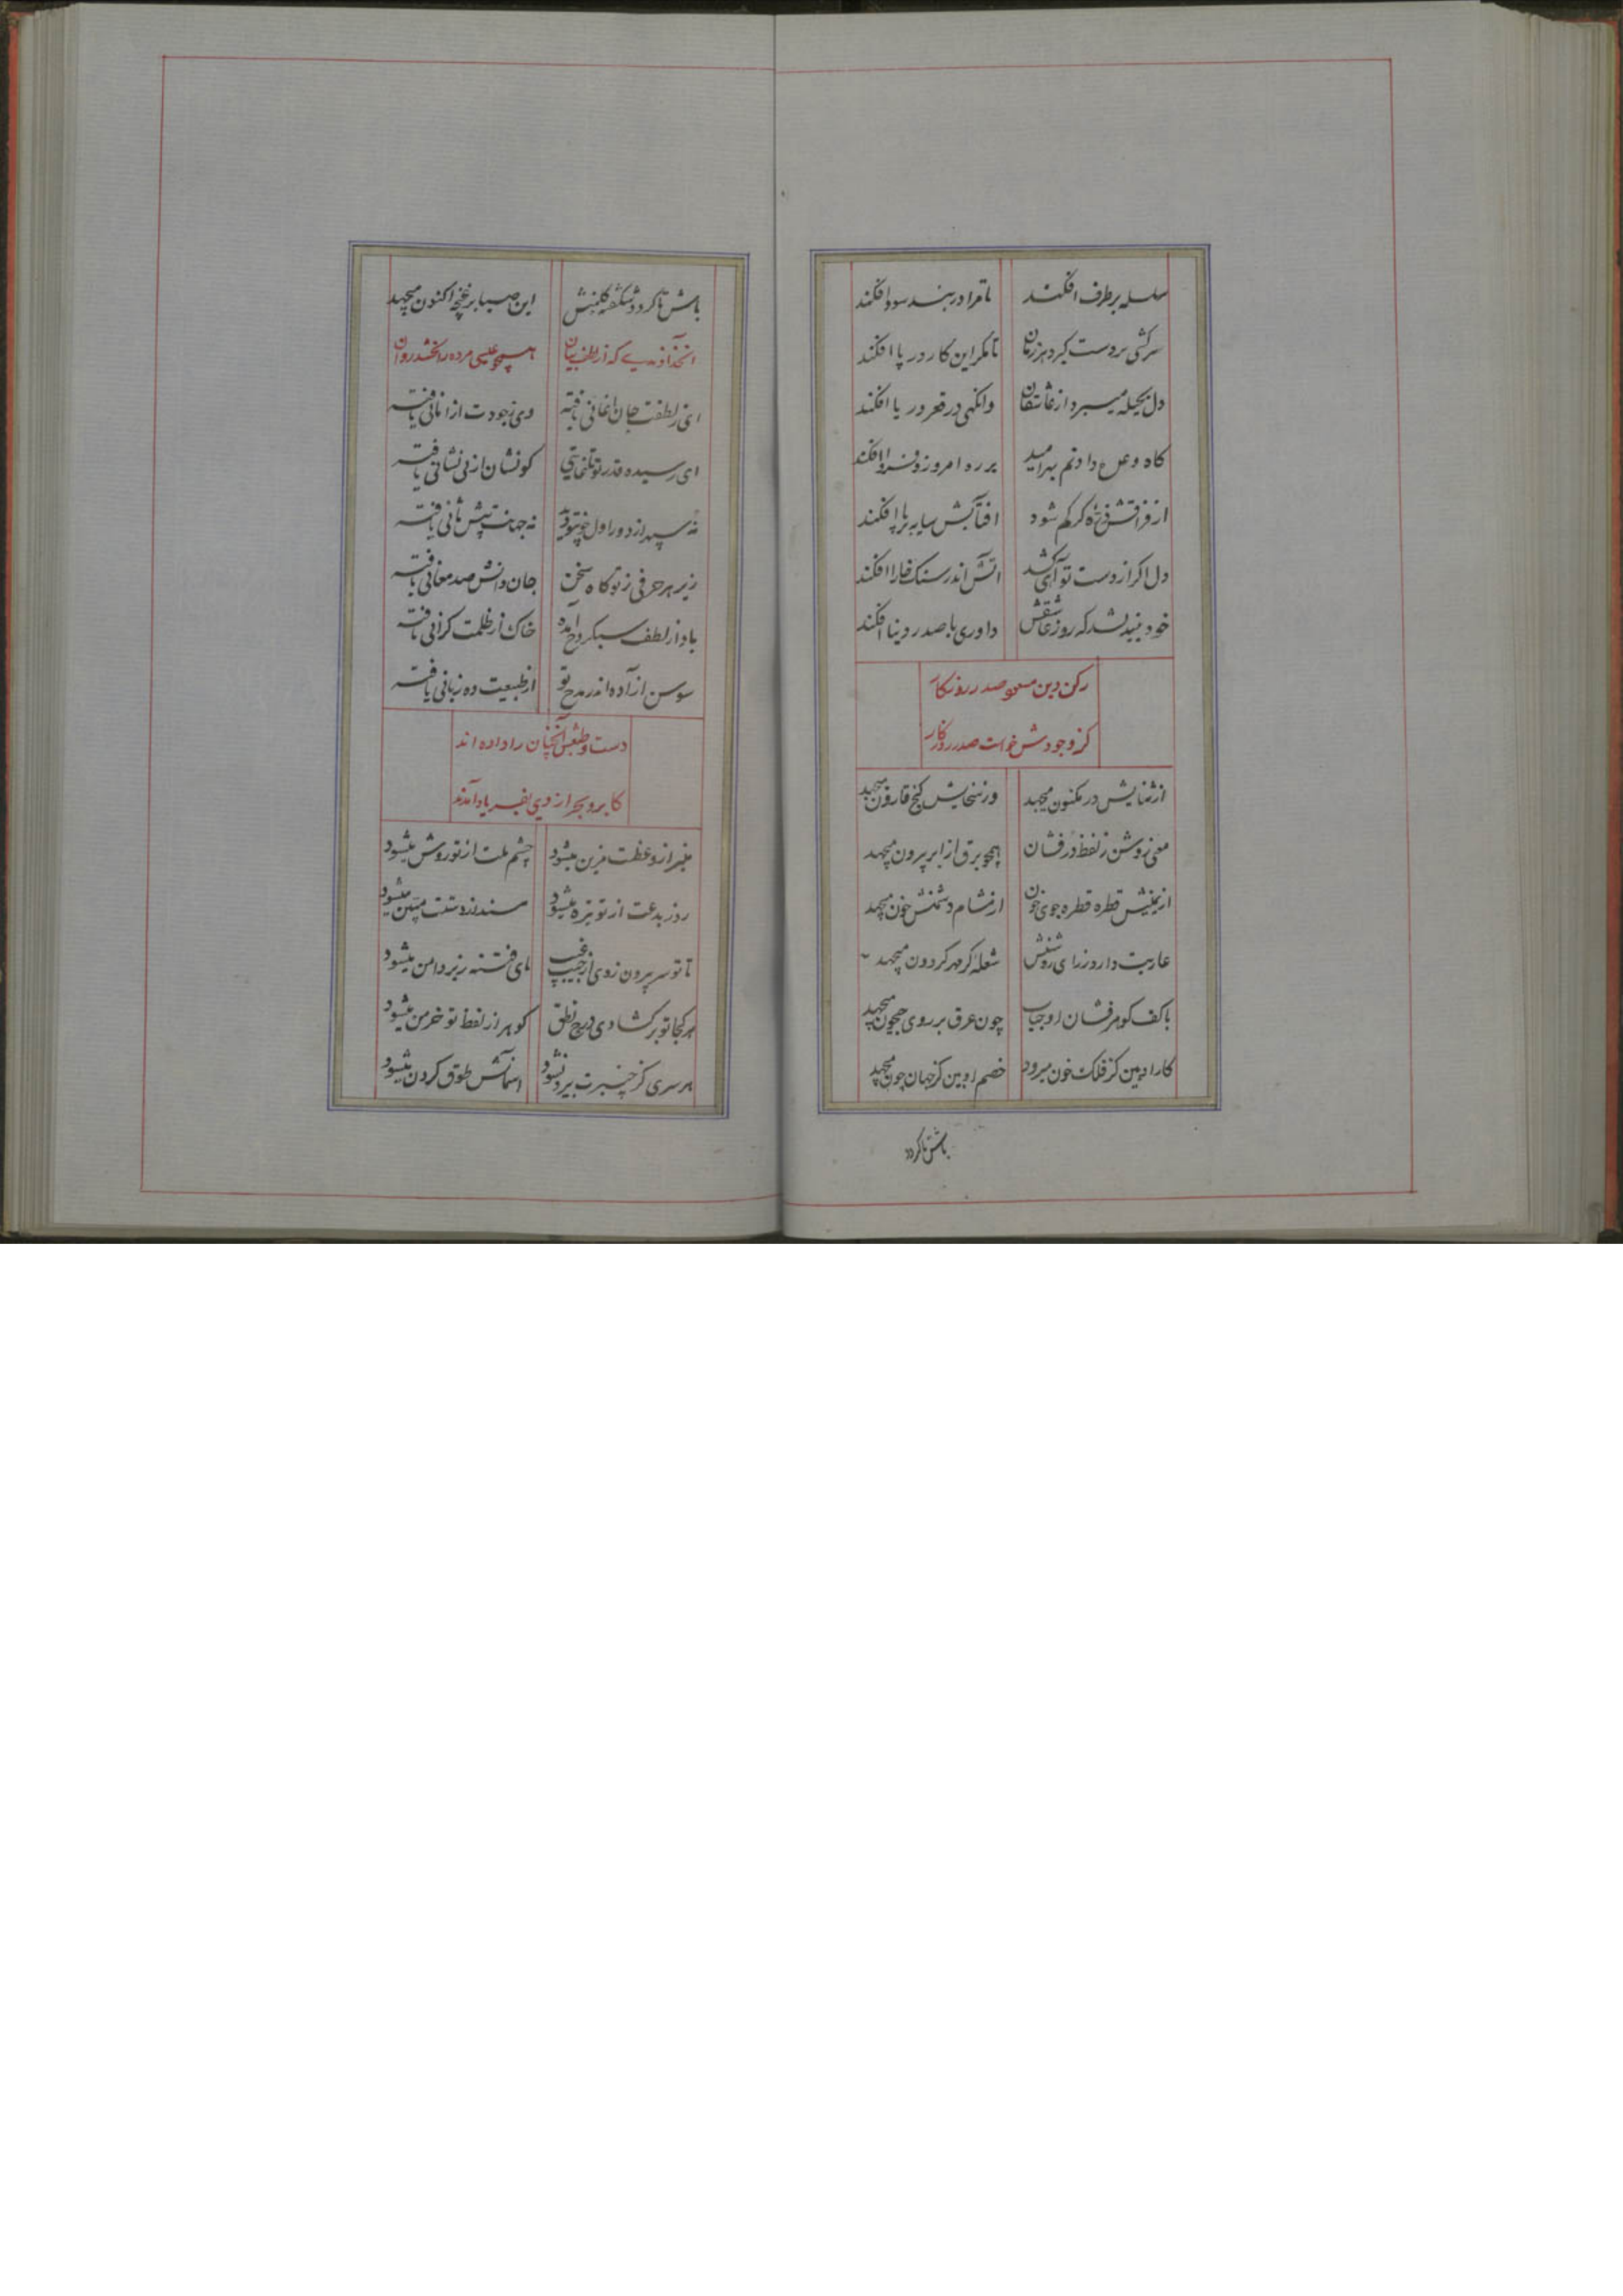 سلسله بر طرف افکند تا مرا در بند سودا افکند
سرکشی بر دست کیرد هر زمان تا مکر این کار در پا افکند
دل بحیله میبرد از عاشقان وانکهی در قعر دریا افکند
کاه وعده دادنم بر امید بر ره امروز و فردا افکند
از فراقش ذره کر کم شود افتابش سایه بر ما افکند
دل اکر از دست تو آهی کشد اتش اندر سنک خارا افکند
خود نیندیشد که روز عاشقش داوری با صدر دنیا افکند
رکن دین مسعود صدر روزکار
کز وجودش خواست صدر روزکار
از ثنایش در مکنون میجهد وز سخایش کنج قارون میجهد
معنی روشن ز لفظ درفشان همچو برق از ابر بیرون میجهد
از نهیبش قطره قطره جوی خون از مشام دشمنش خون میجهد
عاریت دارد ز رای روشنش شعله کز مهر کردون میجهد
با کف کوهرفشان او حباب چون عرق بر روی جیحون میجهد
کار او بین کز فلک خون میرود خصم او بین کز جهان چون میجهد
باش تا کردد
باش تا کردد شکفته کلبنش این صبا بر غنچه اکنون میجهد
آنخداوندی که از لطف بیان همچو عیسی مرده را بخشد روان
ای ز لطفت جان اغانی یافته وی ز جودت از امانی یافته
ای رسیده قدر تو تا غایتی کو نشان از بی نشانی یافته
نه سپهر از دور اول چو تو دید نه جهانت هیچ ثانی یافته
زیر هر حرفی ز تو کاه سخن جان دانش صد معانی یافته
باد از لطفت سبکروح آمده خاک از حلمت کرانی یافته
سوسن ازاده اندر مدح تو از طبیعت ده زبانی یافته
دست و طبعش آنچنان را داده اند
کابر و بحر از وی بفریاد آمدند
منبر از وعظت مزین میشود چشم ملت از تو روشن میشود
روز بدعت از تو تیره میشود مسند از دستت مبین میشود
تا تو سر بیرون زدی از جیب غیب پای فتنه زیر دامن میشود
هر کجا تو بر کشادی درج نطق کوهر از لفظ تو خرمن میشود
هر سری کز چنبرت بیرون شود اسمانش طوق کردن میشود